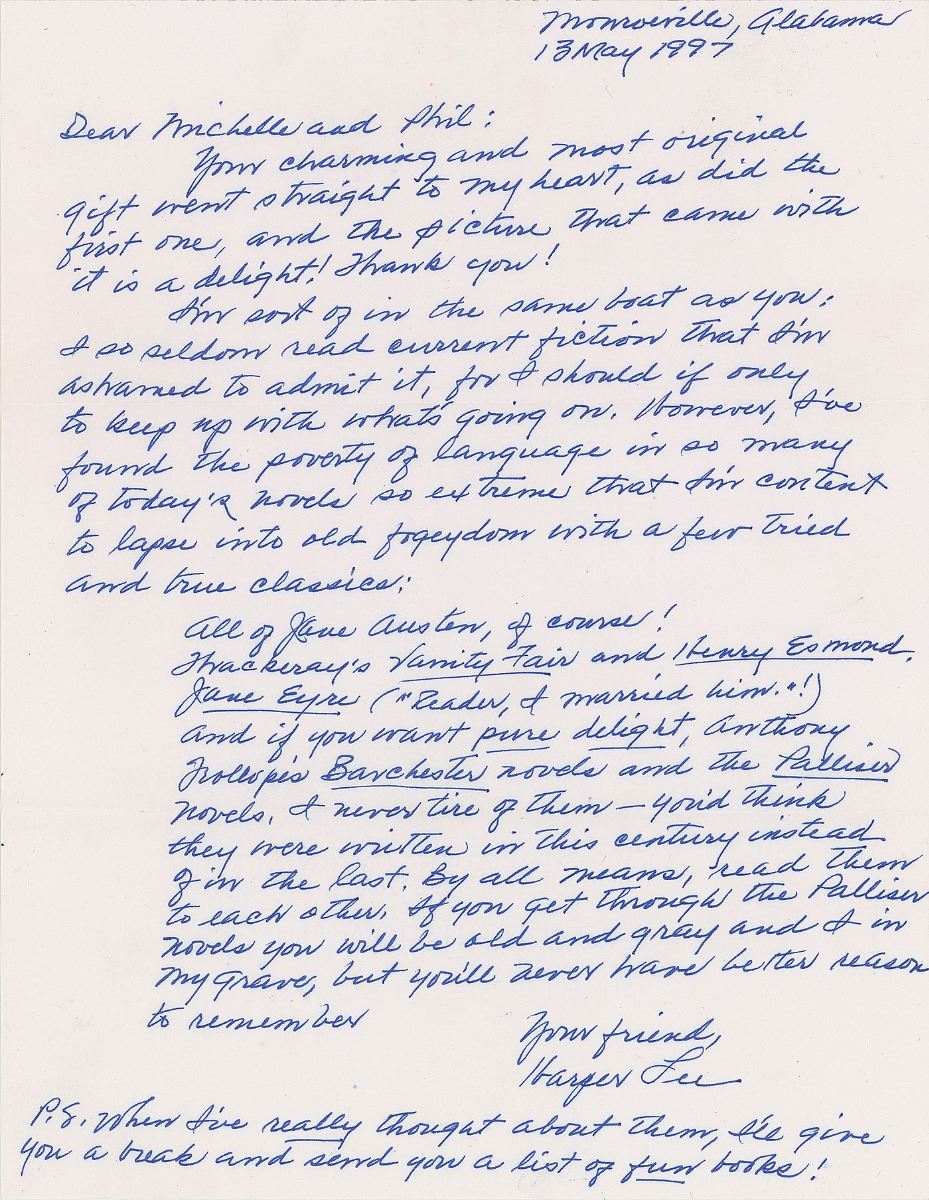 Monroeville, Alabama
13 May 1997
Dear Michelle and Phil:
Your charming and most original
gift went straight to my heart, as did the
first one, and the picture that came with
it is a delight! Thank you!
I'm sort of in the same boat as you:
I so seldom read current fiction that I'm
ashamed to admit it, for I should if only
to keep up with what's going on. However, I've
found the poverty of language in so many
of today's novels so extreme that I'm content
to lapse into old fogeydom with a few tried
and true classics:
All of Jane Austen, of course!
Thackeray's Vanity Fair and Henry Esmond.
Jane Eyre ("Reader, I married him."!)
And if you want pure delight, Anthony
Trollope's Barchester novels and the Palliser
novels. I never tire of them — you'd think
they were written in this century instead
of in the last. By all means, read them
to each other. If you get through the Palliser
novels you will be old and gray and I in
my grave, but you'll never have better reason
to remember
Your friend,
Harper Lee
P.S. When I've really thought about them, I'll give
you a break and send you a list of fun books!